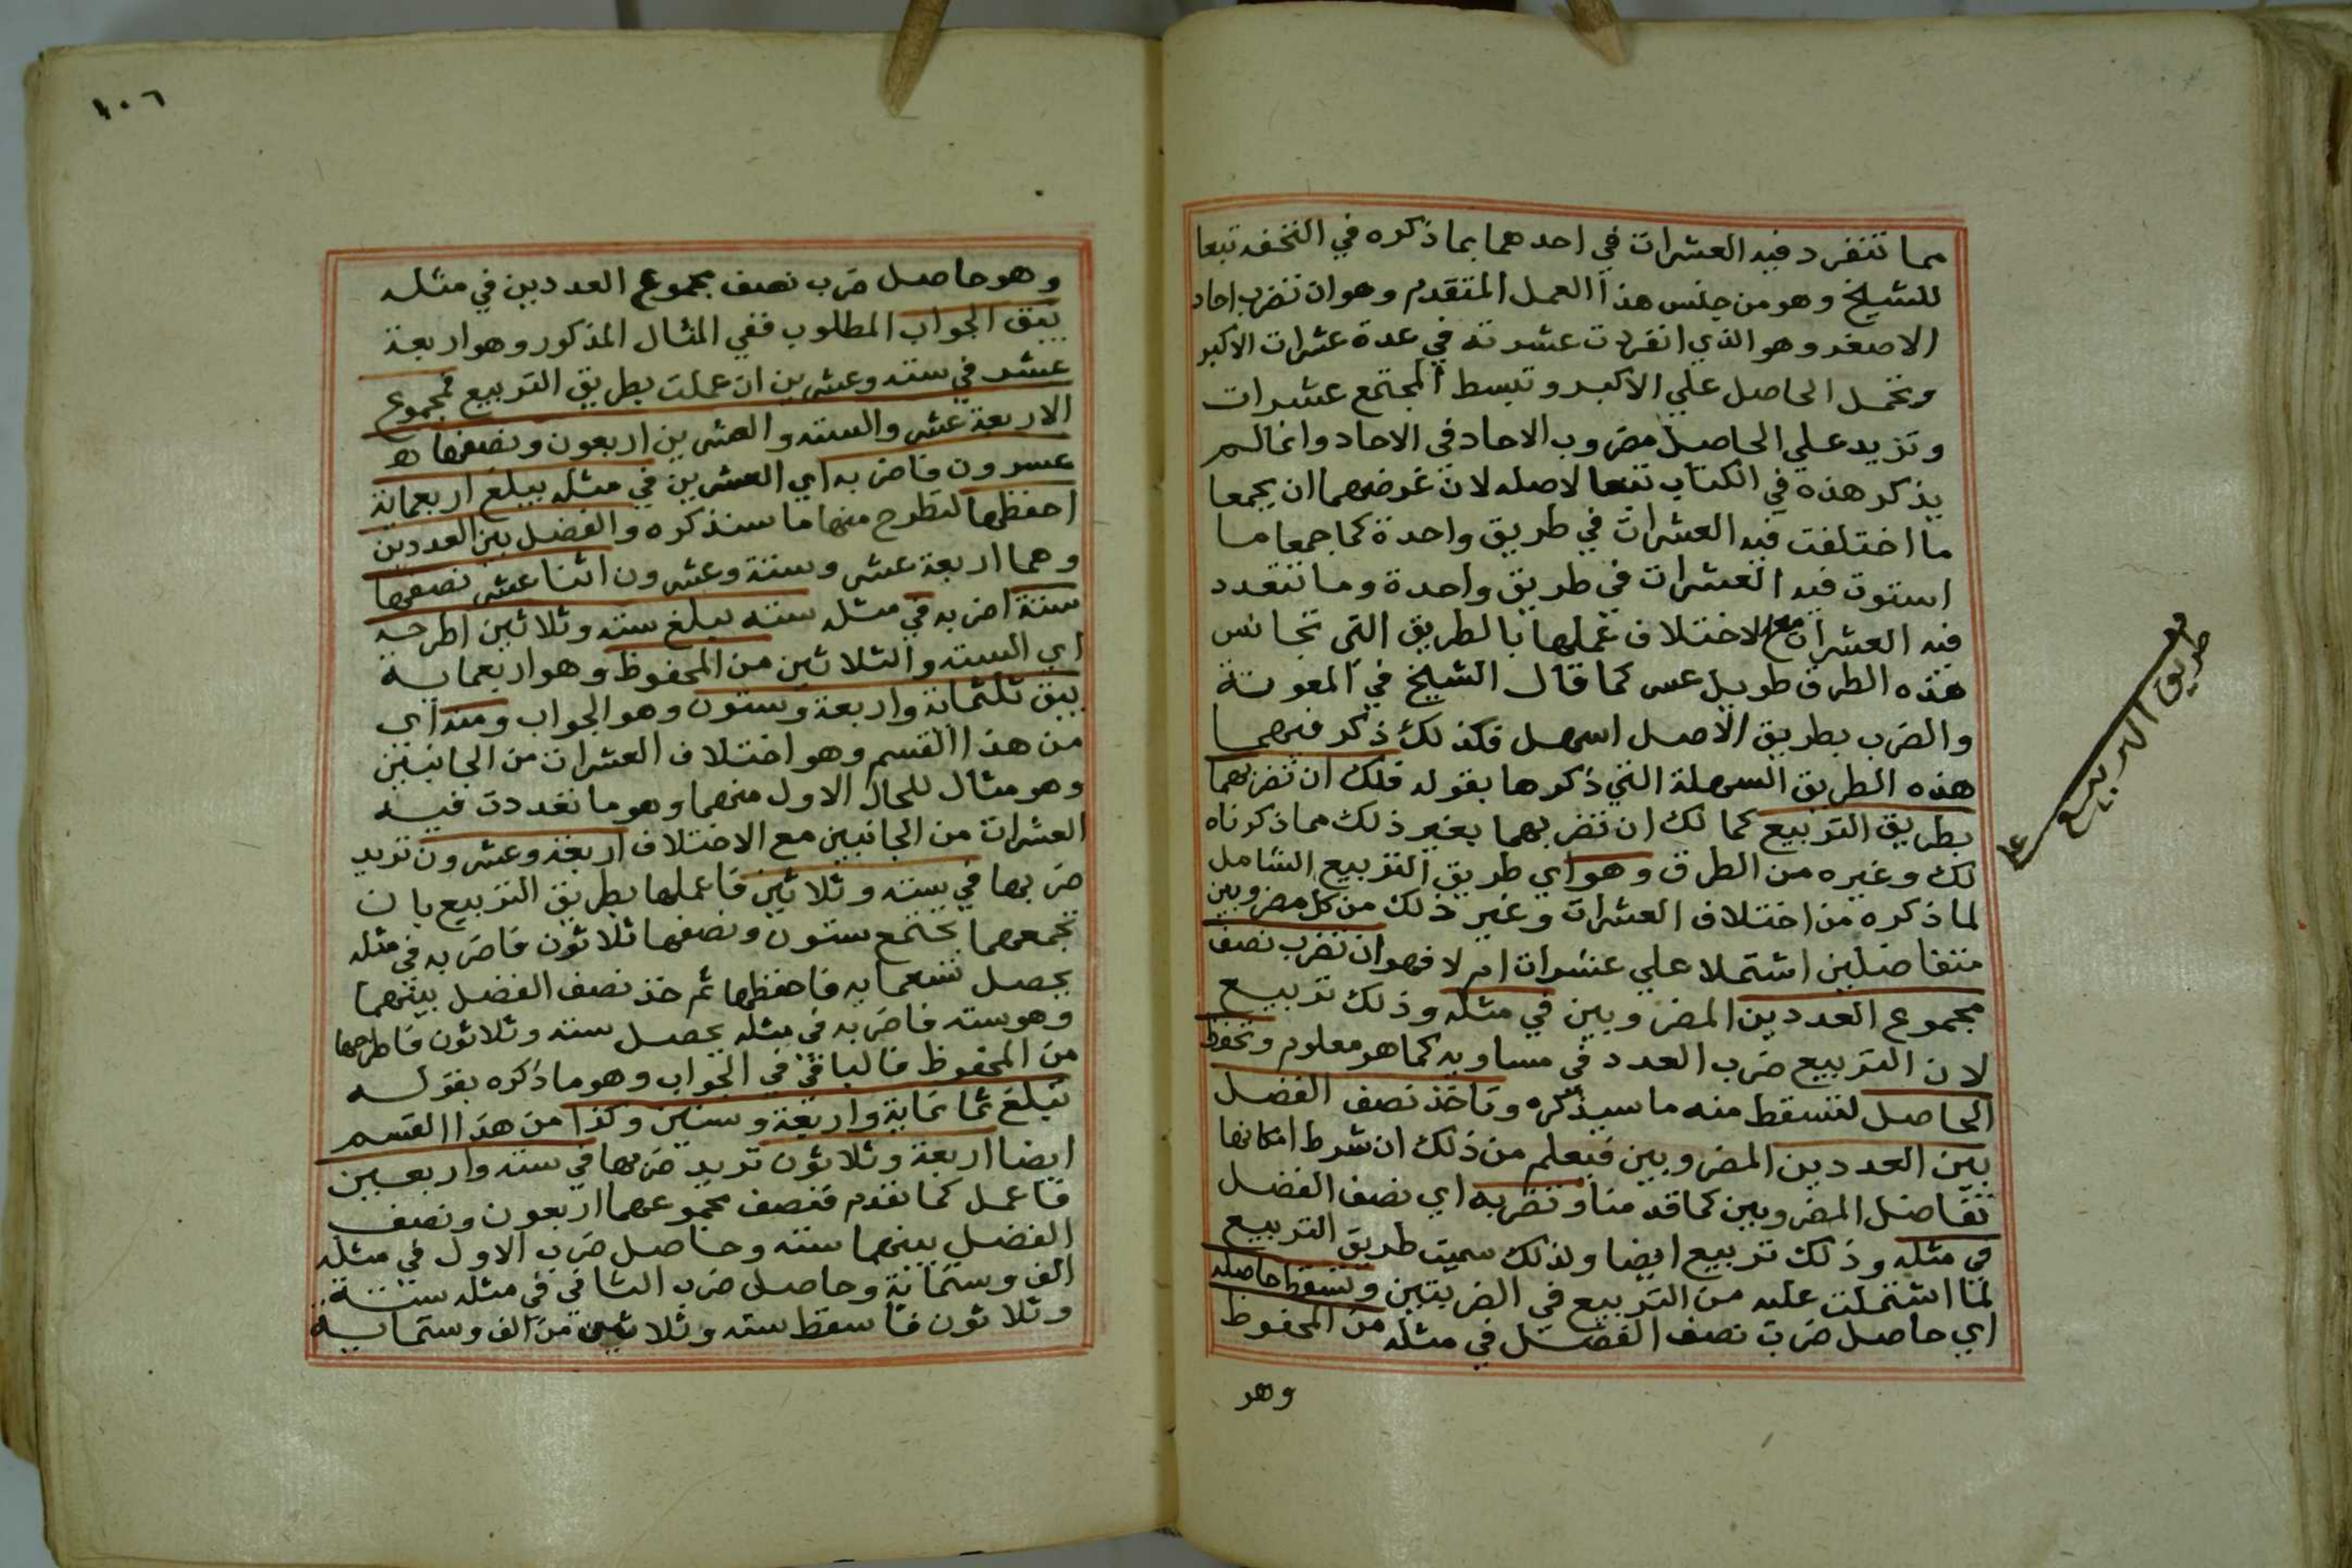 مما تنفرد فيه العشرات في احدهما بما ذكره في التحفه تبعا
للشيخ وهو من جنس هذا العمل المتقدم وهو ان تضرب احاد
الاصغر وهو الذي انفردت عشرته في عدة عشرات الاكبر
وتحمل الحاصل علي الاكبر وتبسط المجتمع عشرات
وتزيد علي الحاصل مضروب الاحاد في الاحاد وانما لم
يذكر هذه في الكتاب تبعا لاصله لان غرضهما ان يجمعا
ما اختلفت فيه العشرات في طريق واحدة كما جمعا ما
استوت فيه العشرات في طريق واحدة وما تتعدد
فيه العشرات مع الاختلاف عملها بالطريق التي تجانس
هذه الطرق طويل عسر كما قال الشيخ في المعونة
والضرب بطريق الاصل اسهل فكذلك ذكر فيهما
هذه الطريق السهلة التي ذكرها بقوله فلك ان تضربهما
بطريق التربيع كما لك ان تضربهما بغير ذلك مما ذكرناه
لك وغيره من الطرق وهو اي طريق التربيع الشامل
لما ذكره من اختلاف العشرات وغير ذلك من كل مضروبين
متفاضلين اشتملا علي عشرات ام لا فهو ان تضرب نصف
مجموع العددين المضروبين في مثله وذلك تربيع
لان التربيع ضرب العدد في مساويه كما هو معلوم وتحفظ
الحاصل لتسقط منه ما سيذكره وتاخذ نصف الفضل
بين العددين المضروبين فيعلم من ذلك ان شرط امكانها
تفاضل المضروبين كما قدمنا وتضربه اي نصف الفضل
في مثله وذلك تربيع ايضا ولذلك سميت طريق التربيع
لما اشتملت عليه من التربيع في الضربتين وتسقط حاصله
اي حاصل ضرب نصف الفضل في مثله من المحفوظ
وهو
طريق التربيع
١٠٦
وهو حاصل ضرب نصف مجموع العددين في مثله
يبق الجواب المطلوب ففي المثال المذكور وهو اربعة
عشر في سته وعشرين ان عملت بطريق التربيع فمجموع
الاربعة عشر والسته والعشرين اربعون ونصفها
عسرون فاضربه اي العشرين في مثله يبلغ اربعماية
احفظها لتطرح منها ما سنذكره والفضل بين العددين
وهما اربعة عشر وستة وعشرون اثنا عشر نصفها
ستة اضربه في مثله سته يبلغ سته وثلاثين اطرحه
اي السته والثلاثين من المحفوظ وهو اربعماية
يبق ثلثماية واربعة وستون وهو الجواب ومنه اي
من هذا القسم وهو اختلاف العشرات من الجانبين
وهو مثال للحال الاول منهما وهو ما تعددت فيه
العشرات من الجانبين مع الاختلاف اربعة وعشرون تريد
ضربها في سته وثلاثين فاعملها بطريق التربيع بان
تجمعهما يجتمع ستون ونصفها ثلاثون فاضربه في مثله
يحصل تسعمايه فاحفظها ثم خذ نصف الفضل بينهما
وهو سته فاضربه في مثله يحصل سته وثلاثون فاطرحها
من المحفوظ فالباقي في الجواب وهو ما ذكره بقوله
تبلغ ثمانماية واربعة وستين وكذا من هذا القسم
ايضا اربعة وثلاثون تريد ضربها في سته واربعين
فاعمل كما تقدم فنصف مجموعهما اربعون ونصف
الفضل بينهما سته وحاصل ضرب الاول في مثله
الف وستماية وحاصل ضرب الثاني في مثله ستة
وثلاثون فاسقط سته وثلاثين من الف وستماية